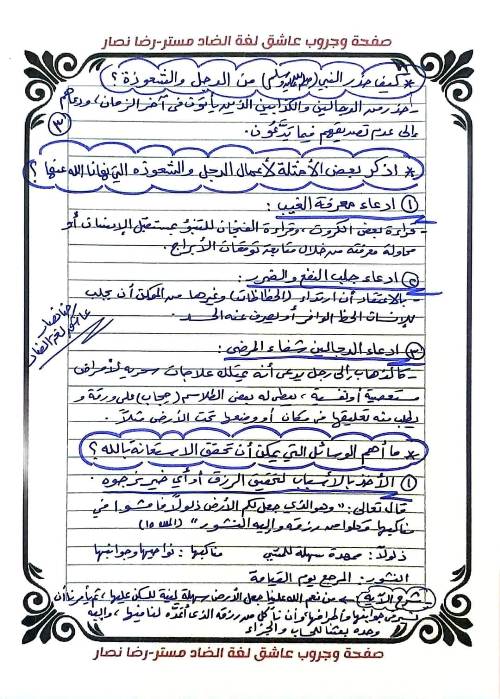 صفحة وجروب عاشق لغة الضاد مستر-رضا نصار
* كيف حذر النبي (صلى الله عليه وسلم) من الدجل والشعوذة ؟
- حذر من الدجالين والكذابين الذين يأتون في آخر الزمان، ودعاهم
إلى عدم تصديقهم فيما يدَّعُون.
٣
* اذكر بعض الأمثلة لأعمال الدجل والشعوذة التي نهانا الله عنها ؟
① ادعاء معرفة الغيب :
- قراءة بعض الكروت، وقراءة الفنجان للتنبؤ بمستقبل الإنسان أو
محاولة معرفته من خلال متابعة توقعات الأبراج.
② ادعاء جلب النفع والضرر :
- بالاعتقاد أن ارتداء (الحظاظات) وغيرها من الممكن أن يجلب
للإنسان الحظ الوافر أو يصرف عنه الحسد.
رضا نصار
عاشق لغة الضاد
③ ادعاء الدجالين شفاء المرضى :
- كالذهاب إلى رجل يدعى أنه يمتلك علاجات سحرية لأمراض
مستعصية أو نفسية، بعطى له بعض الطلاسم (حجاب) على ورقة و
يطلب منه تعليقها في مكان أو وضعها تحت الأرض مثلاً.
* ما أهم الوسائل التي يمكن أن تحقق الاستعانة بالله ؟
① الأخذ بالأسباب لتحقيق الرزق أو أي خير نرجوه.
قال تعالى : " هو الذي جعل لكم الأرض ذلولًا فامشوا في
مناكبها وكلوا من رزقه وإليه النشور " (الملك ١٥)
ذلولاً : ممهدة سهلة للمشي مناكبها : نواحيها وجوانبها
النشور : المرجع يوم القيامة
شرح الآية ← من نعم الله علينا جعل الأرض سهلة لينة للسكن عليها، ثم أمرنا أن
جوانبها وأطرافها، وأن نأكل من رزقه الذي أعده لنا فيها، وإليه
وحده بعثنا للحساب والجزاء
صفحة وجروب عاشق لغة الضاد مستر-رضا نصار